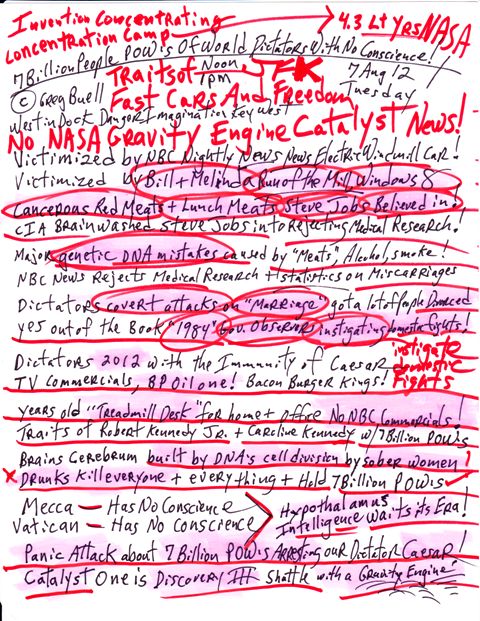 Invention Concentrating
Concentration Camp 4.3 Lt Yrs NASA
7 Billion People POWs Of World Dictators With No Conscience!
Traits of Noon 7 Aug 12
1pm JFK Tuesday
© Greg Buell
Fast Cars And Freedom
Westin Dock Danger Imagination Key West
No NASA Gravity Engine Catalyst News!
Victimized by NBC Nightly News News Electric Windmill Car!
Victimized by Bill + Melinda Run of the Mill Windows 8
Cancerous Red Meats + Lunch Meats Steve Jobs Believed in!
CIA Brainwashed Steve Jobs into Rejecting Medical Research!
Major genetic DNA mistakes caused by "Meats", Alcohol, smoke!
NBC News Rejects Medical Research + statistics on Miscarriages
Dictators covert attacks on "Marriage" got a lot of people Divorced
yes out of the Book "1984" Gov. Observers instigating domestic fights!
Dictators 2012 with the Immunity of Caesar instigate
TV Commercials, BP Oil one! Bacon Burger Kings! domestic
Fights
years old "Treadmill Desk" for home + office No NBC Commercials!
Traits of Robert Kennedy Jr. + Caroline Kennedy w/7 Billion POWs
Brains Cerebrum built by DNA's cell division by sober women!
x Drunks Kill everyone + everything + Hold 7 Billion POWs
Mecca — Has No Conscience
Vatican — Has No Conscience
Hypothalamus
Intelligence Waits its Era!
Panic Attack about 7 Billion POWs Arresting our Dictator Caesar!
Catalyst One is Discovery III Shuttle with a "Gravity Engine"